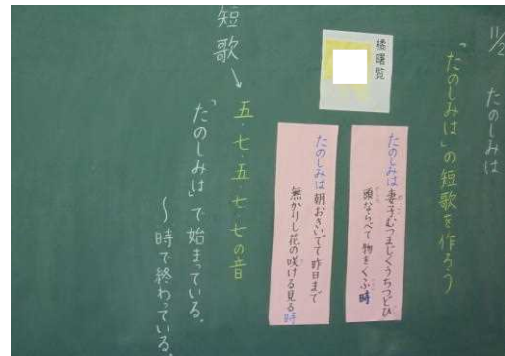 11/2
たのしみは
「たのしみは」の短歌を作ろう
橘曙覧
たのしみは妻子むつまじくうちつどひ
頭ならべて物をくふ時
たのしみは朝おきいでて昨日まで
無かりし花の咲ける見る時
短歌
五・七・五・七・七の音
「たのしみは」で始まっている。
～時で終わっている。